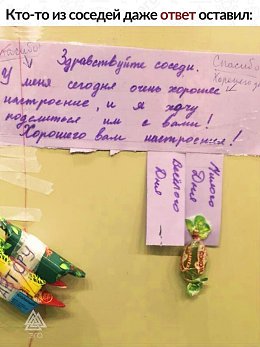 Кто-то из соседей даже ответ оставил:
Спасибо!
Здравствуйте соседи.
Спасибо
Хорошего
У меня сегодня очень хорошее
настроение, и я хочу
поделиться им с вами!
Хорошего вам настроения!
Весёлого
Дня
Милого
Дня